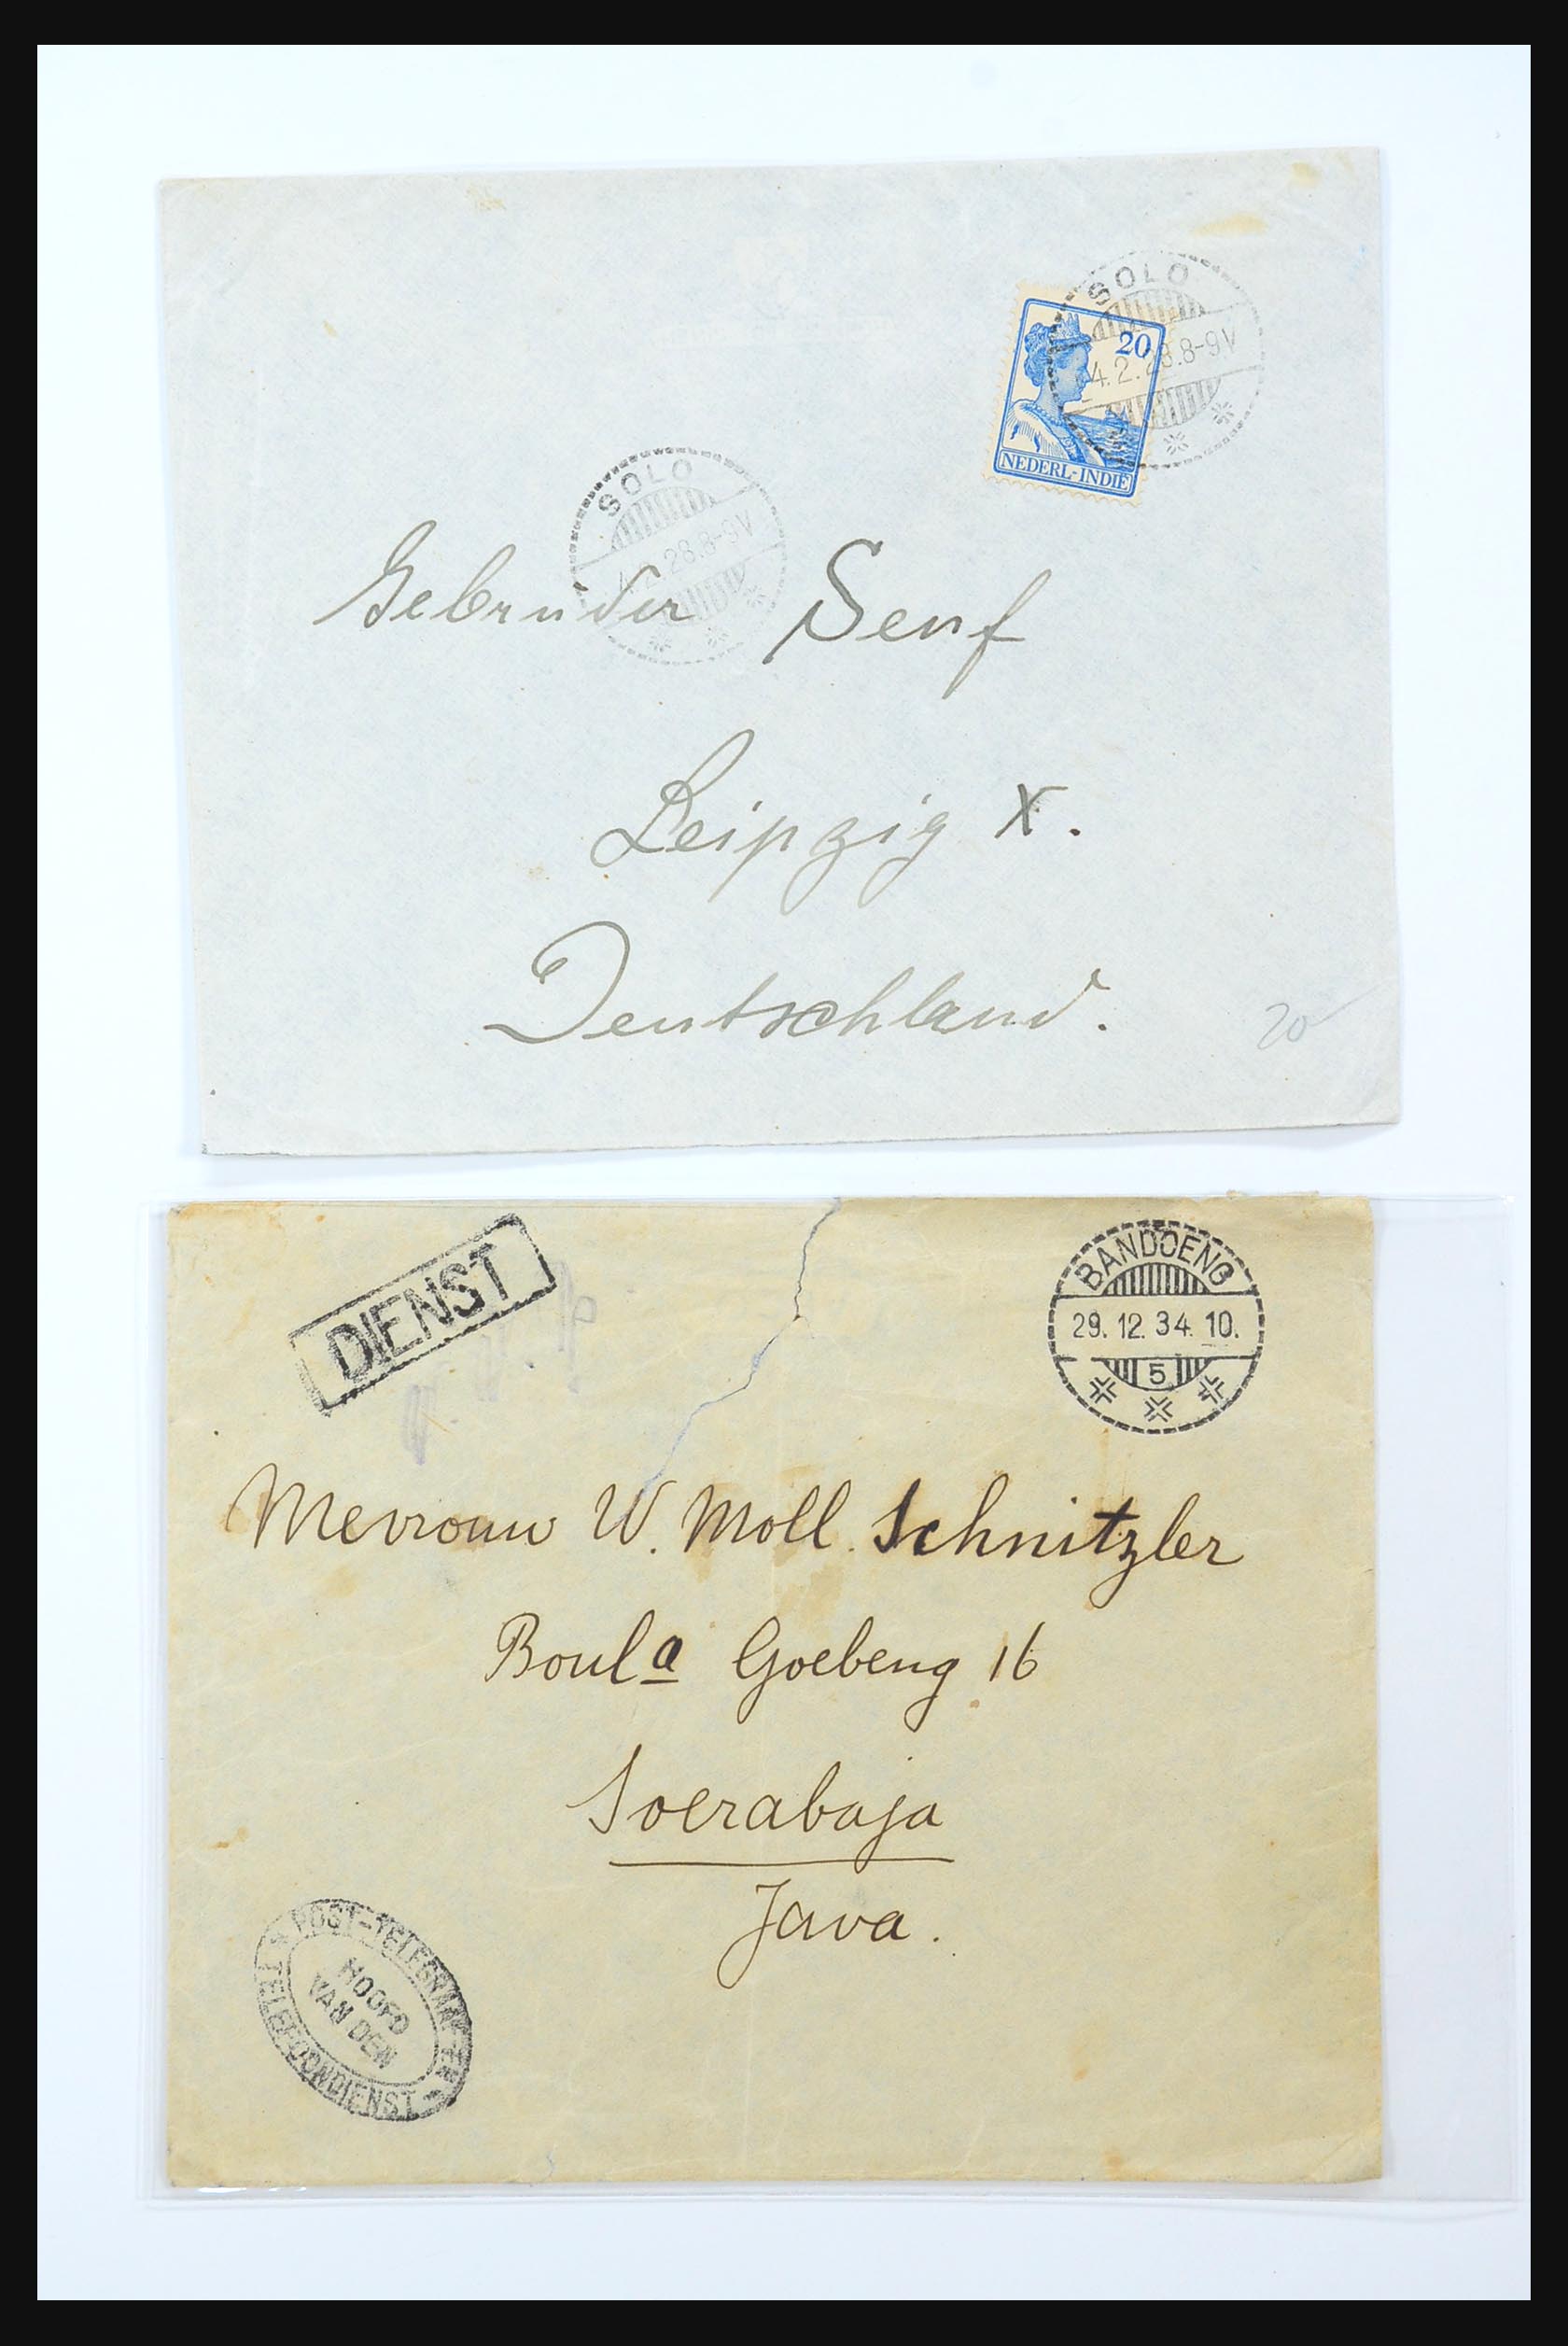 SOLO
4.2.28.8-9V
20
NEDERL-INDIË
SOLO
4.2.28.8-9V
Gebrüder Senf
Leipzig X.
Deutschland.
20
DIENST
BANDOENG
29.12.34.10.
5
Mevrouw W. Moll. Schnitzler
Boul a Goebeng 16
Soerabaja
Java.
POST-TELEGRAAF- EN
TELEFOONDIENST
HOOFD
VAN DEN